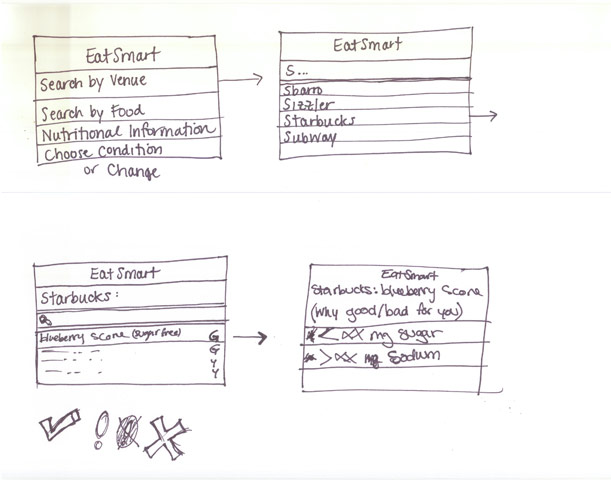 EatSmart
Search by Venue
Search by Food
Nutritional Information
Choose Condition
or Change
EatSmart
S...
Sbarro
Sizzler
Starbucks
Subway
EatSmart
Starbucks:
blueberry scone (sugar free) G
G
Y
Y
EatSmart
Starbucks: blueberry scone
(why good/bad for you)
< xx mg sugar
> xx mg Sodium